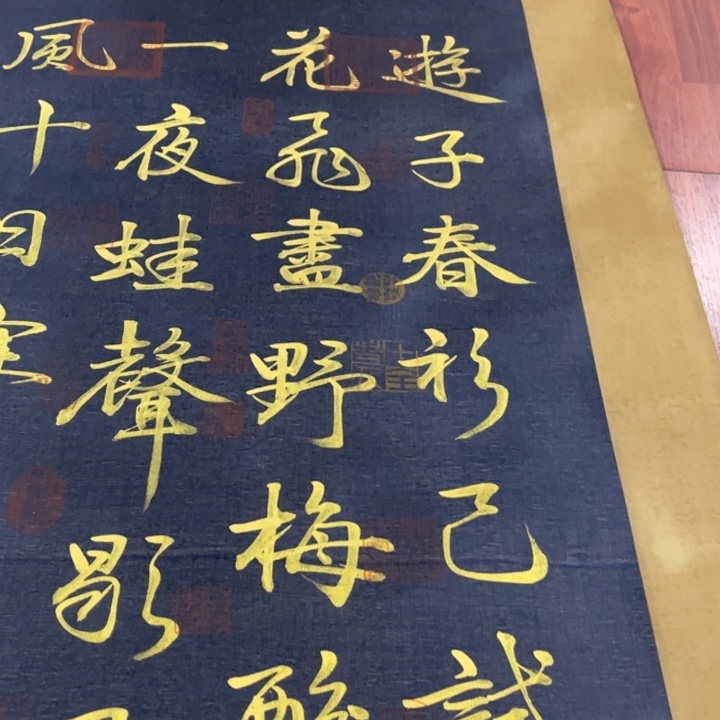 遊子春衫己試
花飛盡野梅酸
一夜蛙聲歇
風十日寒